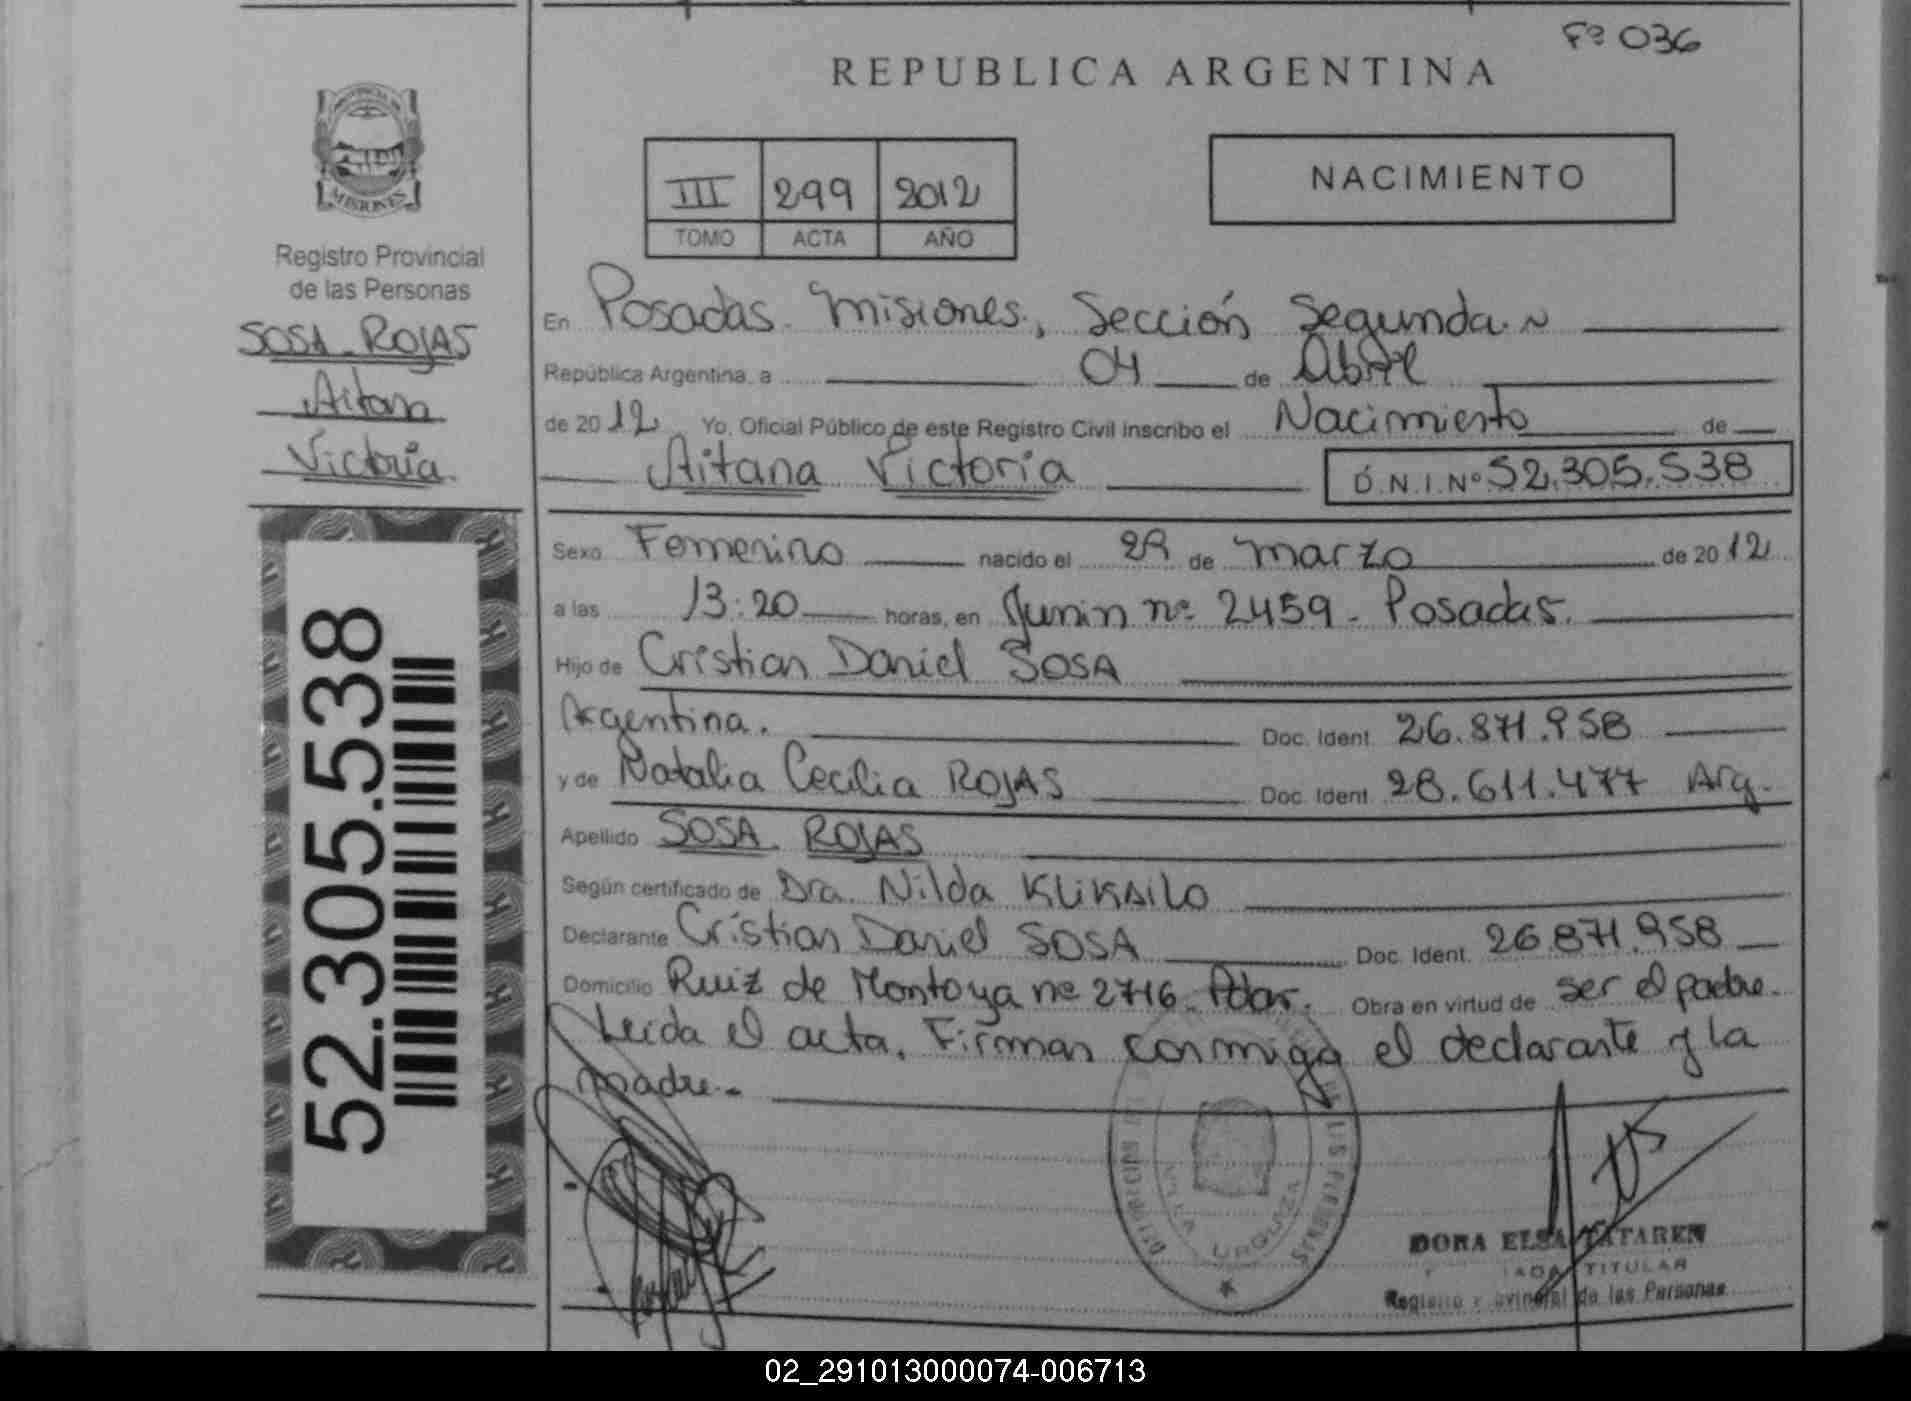 Fº 036
REPUBLICA ARGENTINA
PROVINCIA DE
MISIONES
Registro Provincial
de las Personas
SOSA ROJAS
Aitana
Victoria
III 299 2012
TOMO ACTA AÑO
NACIMIENTO
En Posadas. Misiones, Sección Segunda
República Argentina, a 04 de Abril
de 2012 Yo, Oficial Público de este Registro Civil inscribo el Nacimiento de
Aitana Victoria D.N.I.Nº 52.305.538
52.305.538
Sexo Femenino nacido el 29 de Marzo de 2012
a las 13:20 horas, en Junin nº 2459 - Posadas.
Hijo de Cristian Daniel SOSA
Argentina. Doc. Ident. 26.871.958
y de Natalia Cecilia ROJAS Doc. Ident. 28.611.477 Arg.
Apellido SOSA ROJAS
Según certificado de Dra. Nilda
Declarante Cristian Daniel SOSA Doc. Ident. 26.871.958
Domicilio Ruiz de Montoya nº 2716 - Pdas. Obra en virtud de ser el padre.
Leida el acta. Firman conmigo el declarante y la
madre.-
VILLA URQUIZA
DORA ELSA TATAREN
TITULAR
de las Personas
02_291013000074-006713